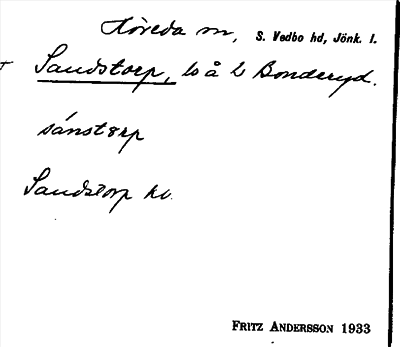 Höreda sn, S. Vedbo hd, Jönk. l.
+ Sandstorp, ls å Bonderyd.
sánstɔrp
Sandstorp kv.
FRITZ ANDERSSON 1933